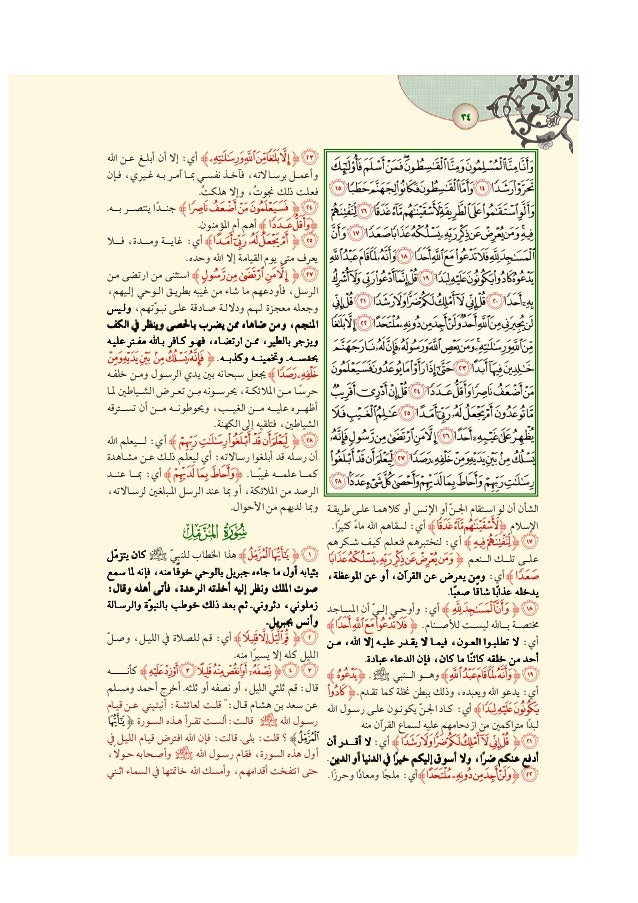 ٣٤
وَأَنَّا مِنَّا ٱلْمُسْلِمُونَ وَمِنَّا ٱلْقَٰسِطُونَ فَمَنْ أَسْلَمَ فَأُو۟لَٰٓئِكَ
تَحَرَّوْا۟ رَشَدًا ١٤ وَأَمَّا ٱلْقَٰسِطُونَ فَكَانُوا۟ لِجَهَنَّمَ حَطَبًا ١٥
وَأَلَّوِ ٱسْتَقَٰمُوا۟ عَلَى ٱلطَّرِيقَةِ لَأَسْقَيْنَٰهُم مَّآءً غَدَقًا ١٦ لِّنَفْتِنَهُمْ
فِيهِ وَمَن يُعْرِضْ عَن ذِكْرِ رَبِّهِۦ يَسْلُكْهُ عَذَابًا صَعَدًا ١٧ وَأَنَّ
ٱلْمَسَٰجِدَ لِلَّهِ فَلَا تَدْعُوا۟ مَعَ ٱللَّهِ أَحَدًا ١٨ وَأَنَّهُۥ لَمَّا قَامَ عَبْدُ ٱللَّهِ
يَدْعُوهُ كَادُوا۟ يَكُونُونَ عَلَيْهِ لِبَدًا ١٩ قُلْ إِنَّمَآ أَدْعُوا۟ رَبِّى وَلَآ أُشْرِكُ
بِهِۦٓ أَحَدًا ٢٠ قُلْ إِنِّى لَآ أَمْلِكُ لَكُمْ ضَرًّا وَلَا رَشَدًا ٢١ قُلْ إِنِّى
لَن يُجِيرَنِى مِنَ ٱللَّهِ أَحَدٌ وَلَنْ أَجِدَ مِن دُونِهِۦ مُلْتَحَدًا ٢٢ إِلَّا بَلَٰغًا
مِّنَ ٱللَّهِ وَرِسَٰلَٰتِهِۦ وَمَن يَعْصِ ٱللَّهَ وَرَسُولَهُۥ فَإِنَّ لَهُۥ نَارَ جَهَنَّمَ
خَٰلِدِينَ فِيهَآ أَبَدًا ٢٣ حَتَّىٰٓ إِذَا رَأَوْا۟ مَا يُوعَدُونَ فَسَيَعْلَمُونَ
مَنْ أَضْعَفُ نَاصِرًا وَأَقَلُّ عَدَدًا ٢٤ قُلْ إِنْ أَدْرِىٓ أَقَرِيبٌ
مَّا تُوعَدُونَ أَمْ يَجْعَلُ لَهُۥ رَبِّىٓ أَمَدًا ٢٥ عَٰلِمُ ٱلْغَيْبِ فَلَا
يُظْهِرُ عَلَىٰ غَيْبِهِۦٓ أَحَدًا ٢٦ إِلَّا مَنِ ٱرْتَضَىٰ مِن رَّسُولٍ فَإِنَّهُۥ
يَسْلُكُ مِنۢ بَيْنِ يَدَيْهِ وَمِنْ خَلْفِهِۦ رَصَدًا ٢٧ لِّيَعْلَمَ أَن قَدْ أَبْلَغُوا۟
رِسَٰلَٰتِ رَبِّهِمْ وَأَحَاطَ بِمَا لَدَيْهِمْ وَأَحْصَىٰ كُلَّ شَىْءٍ عَدَدًۢا ٢٨
الشأن أن لو استقام الجنّ أو الإنس أو كلاهما على طريقة
الإسلام ﴿لَأَسْقَيْنَٰهُم مَّآءً غَدَقًا﴾ أي: لسقاهم الله ماءً كثيرًا.
١٧ ﴿لِّنَفْتِنَهُمْ فِيهِ﴾ أي: لنختبرهم فنعلم كيف شكرهم
على تلك النعم ﴿وَمَن يُعْرِضْ عَن ذِكْرِ رَبِّهِۦ يَسْلُكْهُ عَذَابًا
صَعَدًا﴾ أي: ومن يعرض عن القرآن، أو عن الموعظة،
يدخله عذابًا شاقًا صعبًا.
١٨ ﴿وَأَنَّ ٱلْمَسَٰجِدَ لِلَّهِ﴾ أي: وأوحي إليّ أن المساجد
مختصة بالله ليست للأصنام. ﴿فَلَا تَدْعُوا۟ مَعَ ٱللَّهِ أَحَدًا﴾
أي: لا تطلبوا العون، فيما لا يقدر عليه إلا الله، من
أحد من خلقه كائنًا ما كان، فإن الدعاء عبادة.
١٩ ﴿وَأَنَّهُۥ لَمَّا قَامَ عَبْدُ ٱللَّهِ﴾ وهو النبي ﷺ. ﴿يَدْعُوهُ﴾
أي: يدعو الله ويعبده، وذلك ببطن نخلة كما تقدم. ﴿كَادُوا۟
يَكُونُونَ عَلَيْهِ لِبَدًا﴾ أي: كاد الجنّ يكونون على رسول الله
لبدًا متراكمين من ازدحامهم عليه لسماع القرآن منه
٢١ ﴿قُلْ إِنِّى لَآ أَمْلِكُ لَكُمْ ضَرًّا وَلَا رَشَدًا﴾ أي: لا أقدر أن
أدفع عنكم ضرًا، ولا أسوق إليكم خيرًا في الدنيا أو الدين.
٢٢ ﴿وَلَنْ أَجِدَ مِن دُونِهِۦ مُلْتَحَدًا﴾ أي: ملجًا ومعاذًا وحرزًا.
٢٣ ﴿إِلَّا بَلَٰغًا مِّنَ ٱللَّهِ وَرِسَٰلَٰتِهِۦ﴾ أي: إلا أن أبلغ عن الله
وأعمل برسالاته، فآخذ نفسي بما آمر به غيري، فإن
فعلت ذلك نجوتُ، وإلا هلكتُ.
٢٤ ﴿فَسَيَعْلَمُونَ مَنْ أَضْعَفُ نَاصِرًا﴾ جندًا ينتصر به.
﴿وَأَقَلُّ عَدَدًا﴾ أهم أم المؤمنون.
٢٥ ﴿أَمْ يَجْعَلُ لَهُۥ رَبِّىٓ أَمَدًا﴾ أي: غاية ومدة، فلا
يعرف متى يوم القيامة إلا الله وحده.
٢٧ ﴿إِلَّا مَنِ ٱرْتَضَىٰ مِن رَّسُولٍ﴾ استثنى من ارتضى من
الرسل، فأودعهم ما شاء من غيبه بطريق الوحي إليهم،
وجعله معجزة لهم ودلالة صادقة على نبوّتهم، وليس
المنجم، ومن ضاهاه ممن يضرب بالحصى وينظر في الكف
ويزجر بالطير، ممن ارتضاه، فهو كافر بالله مفتر عليه
بحدسه. وتخمينه وكذبه. ﴿فَإِنَّهُۥ يَسْلُكُ مِنۢ بَيْنِ يَدَيْهِ وَمِنْ
خَلْفِهِۦ رَصَدًا﴾ يجعل سبحانه بين يدي الرسول ومن خلفه
حرسًا من الملائكة، يحرسونه من تعرض الشياطين لما
أظهره عليه من الغيب، ويحوطونه من أن تسترقه
الشياطين، فتلقيه إلى الكهنة.
٢٨ ﴿لِّيَعْلَمَ أَن قَدْ أَبْلَغُوا۟ رِسَٰلَٰتِ رَبِّهِمْ﴾ أي: ليعلم الله
أن رسله قد أبلغوا رسالاته: أي ليعلم ذلك عن مشاهدة
كما علمه غيبًا. ﴿وَأَحَاطَ بِمَا لَدَيْهِمْ﴾ أي: بما عند
الرصد من الملائكة، أو بما عند الرسل المبلغين لرسالاته،
وبما لديهم من الأحوال.
سُورَةُ المُزَّمِّل
١ ﴿يَٰٓأَيُّهَا ٱلْمُزَّمِّلُ﴾ هذا الخطاب للنبيّ ﷺ كان يتزمّل
بثيابه أول ما جاءه جبريل بالوحي خوفًا منه، فإنه لما سمع
صوت الملك ونظر إليه أخذته الرعدة، فأتى أهله وقال:
زملوني، دثروني. ثم بعد ذلك خوطب بالنبوّة والرسالة
وأنس بجبريل.
٢ ﴿قُمِ ٱلَّيْلَ إِلَّا قَلِيلًا﴾ أي: قم للصلاة في الليل، وصلّ
الليل كله إلا يسيرًا منه.
٣ ٤ ﴿نِّصْفَهُۥٓ أَوِ ٱنقُصْ مِنْهُ قَلِيلًا ٣ أَوْ زِدْ عَلَيْهِ﴾ كأنه
قال: قم ثلثي الليل، أو نصفه أو ثلثه. أخرج أحمد ومسلم
عن سعد بن هشام قال: "قلت لعائشة: أنبئيني عن قيام
رسول الله ﷺ قالت: ألست تقرأ هذه السورة ﴿يَٰٓأَيُّهَا
ٱلْمُزَّمِّلُ﴾؟ قلت: بلى. قالت: فإن الله افترض قيام الليل في
أول هذه السورة، فقام رسول الله ﷺ وأصحابه حولا،
حتى انتفخت أقدامهم، وأمسك الله خاتمتها في السماء اثني